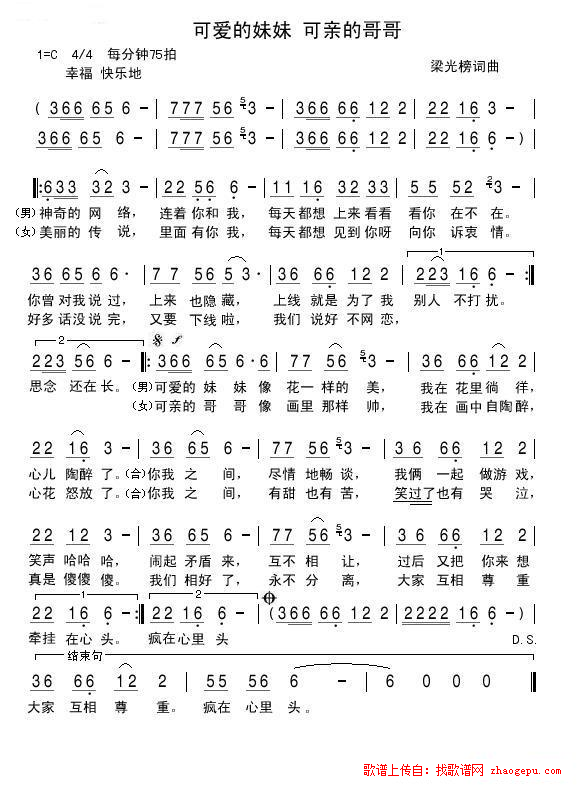 可爱的妹妹 可亲的哥哥
1=C 4/4 每分钟75拍
幸福 快乐地
梁光榜词曲
( 366 65 6 - | 777 56 5 3 - | 366 66 12 2 | 22 16 3 - |
366 65 6 - | 777 56 5 3 - | 366 66 12 2 | 22 16 6 - ) |
|: 633 32 3 - | 22 56 6 - | 11 16 32 33 | 55 52 2 3 - |
(男) 神奇的 网 络, 连着 你和 我, 每天 都想 上来 看看 看你 在不 在。
(女) 美丽的 传 说, 里面 有你 我, 每天 都想 见到 你呀 向你 诉衷 情。
1
36 65 6 6· | 77 56 5 3· | 36 66 12 2 | 223 16 6 - :|
你曾 对我 说 过, 上来 也隐 藏, 上线 就是 为了 我 别人 不打 扰。
好多 话没 说 完, 又要 下线 啦, 我们 说好 不网 恋,
2 𝄋 f
223 56 6 - |: 366 65 6· 6 | 77 56 5 3 - | 36 66 12 2 |
思念 还在 长。 (男) 可爱的 妹 妹 像 花一 样的 美, 我在 花里 徜 徉,
(女) 可亲的 哥 哥 像 画里 那样 帅, 我在 画中 自陶 醉,
22 16 3 - | 36 65 6 - | 77 56 5 3 - | 36 66 12 2 |
心儿 陶醉 了。(合) 你我 之 间, 尽情 地畅 谈, 我俩 一起 做游 戏,
心花 怒放 了。(合) 你我 之 间, 有甜 也有 苦, 笑过了 也有 哭 泣,
22 12 3 - | 36 65 6 - | 77 56 5 3 - | 36 66 12 2 |
笑声 哈哈 哈, 闹起 矛盾 来, 互不 相 让, 过后 又把 你来 想
真是 傻傻 傻。 我们 相好 了, 永不 分 离, 大家 互相 尊 重
1 2 𝄌
22 16 6 - :| 22 16 6 - | (366 66 12 2 | 2222 16 6 -) |
牵挂 在心 头。 疯在 心里 头 D.S.
结束句
36 66 12 2 | 55 56 6 - | 6 0 0 0 ||
大家 互相 尊 重。 疯在 心里 头。
歌谱上传自：找歌谱网 zhaogepu.com